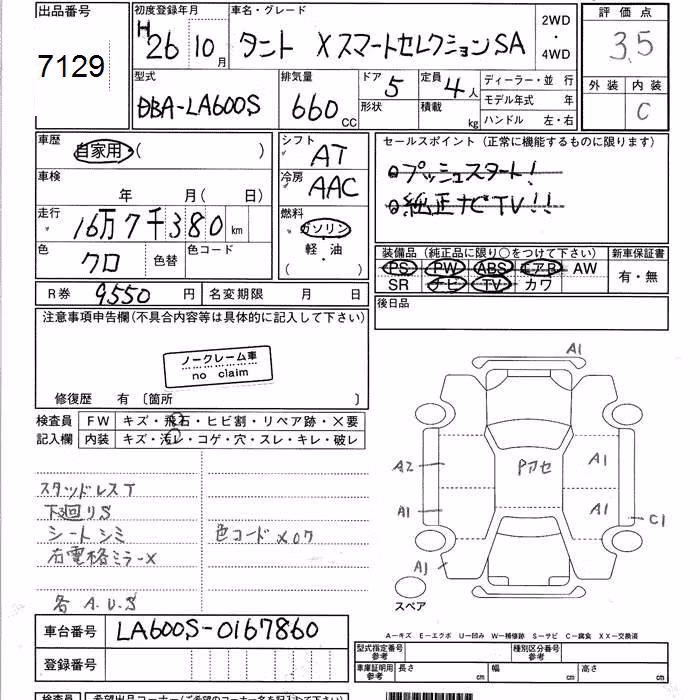 出品番号
7129
初度登録年月
H26 10月
車名・グレード
タント XスマートセレクションSA
2WD
・
4WD
評価点
3.5
外装 内装
C
型式
DBA-LA600S
排気量
660 CC
ドア 5
形状
定員 4人
積載 kg
ディーラー・並 行
モデル年式 年
ハンドル 左・右
車歴
自家用 ( )
車検
年 月( 日)
走行
16万7千380 km
色
クロ
色替
色コード
シフト
AT
冷房
AAC
燃料
ガソリン
軽・油
( )
セールスポイント (正常に機能するものに限ります)
プッシュスタート!
純正ナビTV!!
装備品 (純正品に限り○をつけて下さい)
新車保証書
PS PW ABS エアB AW
SR ナビ TV カワ
有・無
R券 9,550 円
名変期限 月 日
後日品
注意事項申告欄(不具合内容等は具体的に記入して下さい)
ノークレーム車
no claim
修復歴 有 〔箇所 〕
検査員
記入欄
FW キズ・飛石・ヒビ割・リペア跡・×要
内装 キズ・汚レ・コゲ・穴・スレ・キレ・破レ
スタッドレスT
下廻りS
シートシミ
色コード X07
右電格ミラーX
各 A.U.S
A1
A2
A1
A1
Pアセ
A1
A1
C1
スペア
A－キズ E－エクボ U－凹み W－補修跡 S－サビ C－腐食 XX－交換済
車台番号 LA600S-0167860
登録番号
型式指定番号
参考
種別区分番号
参考
車庫証明用
参考
長さ cm
幅 cm
高さ cm
検査員
希望出品コーナー(ご希望のコーナー名を記入して下さい)